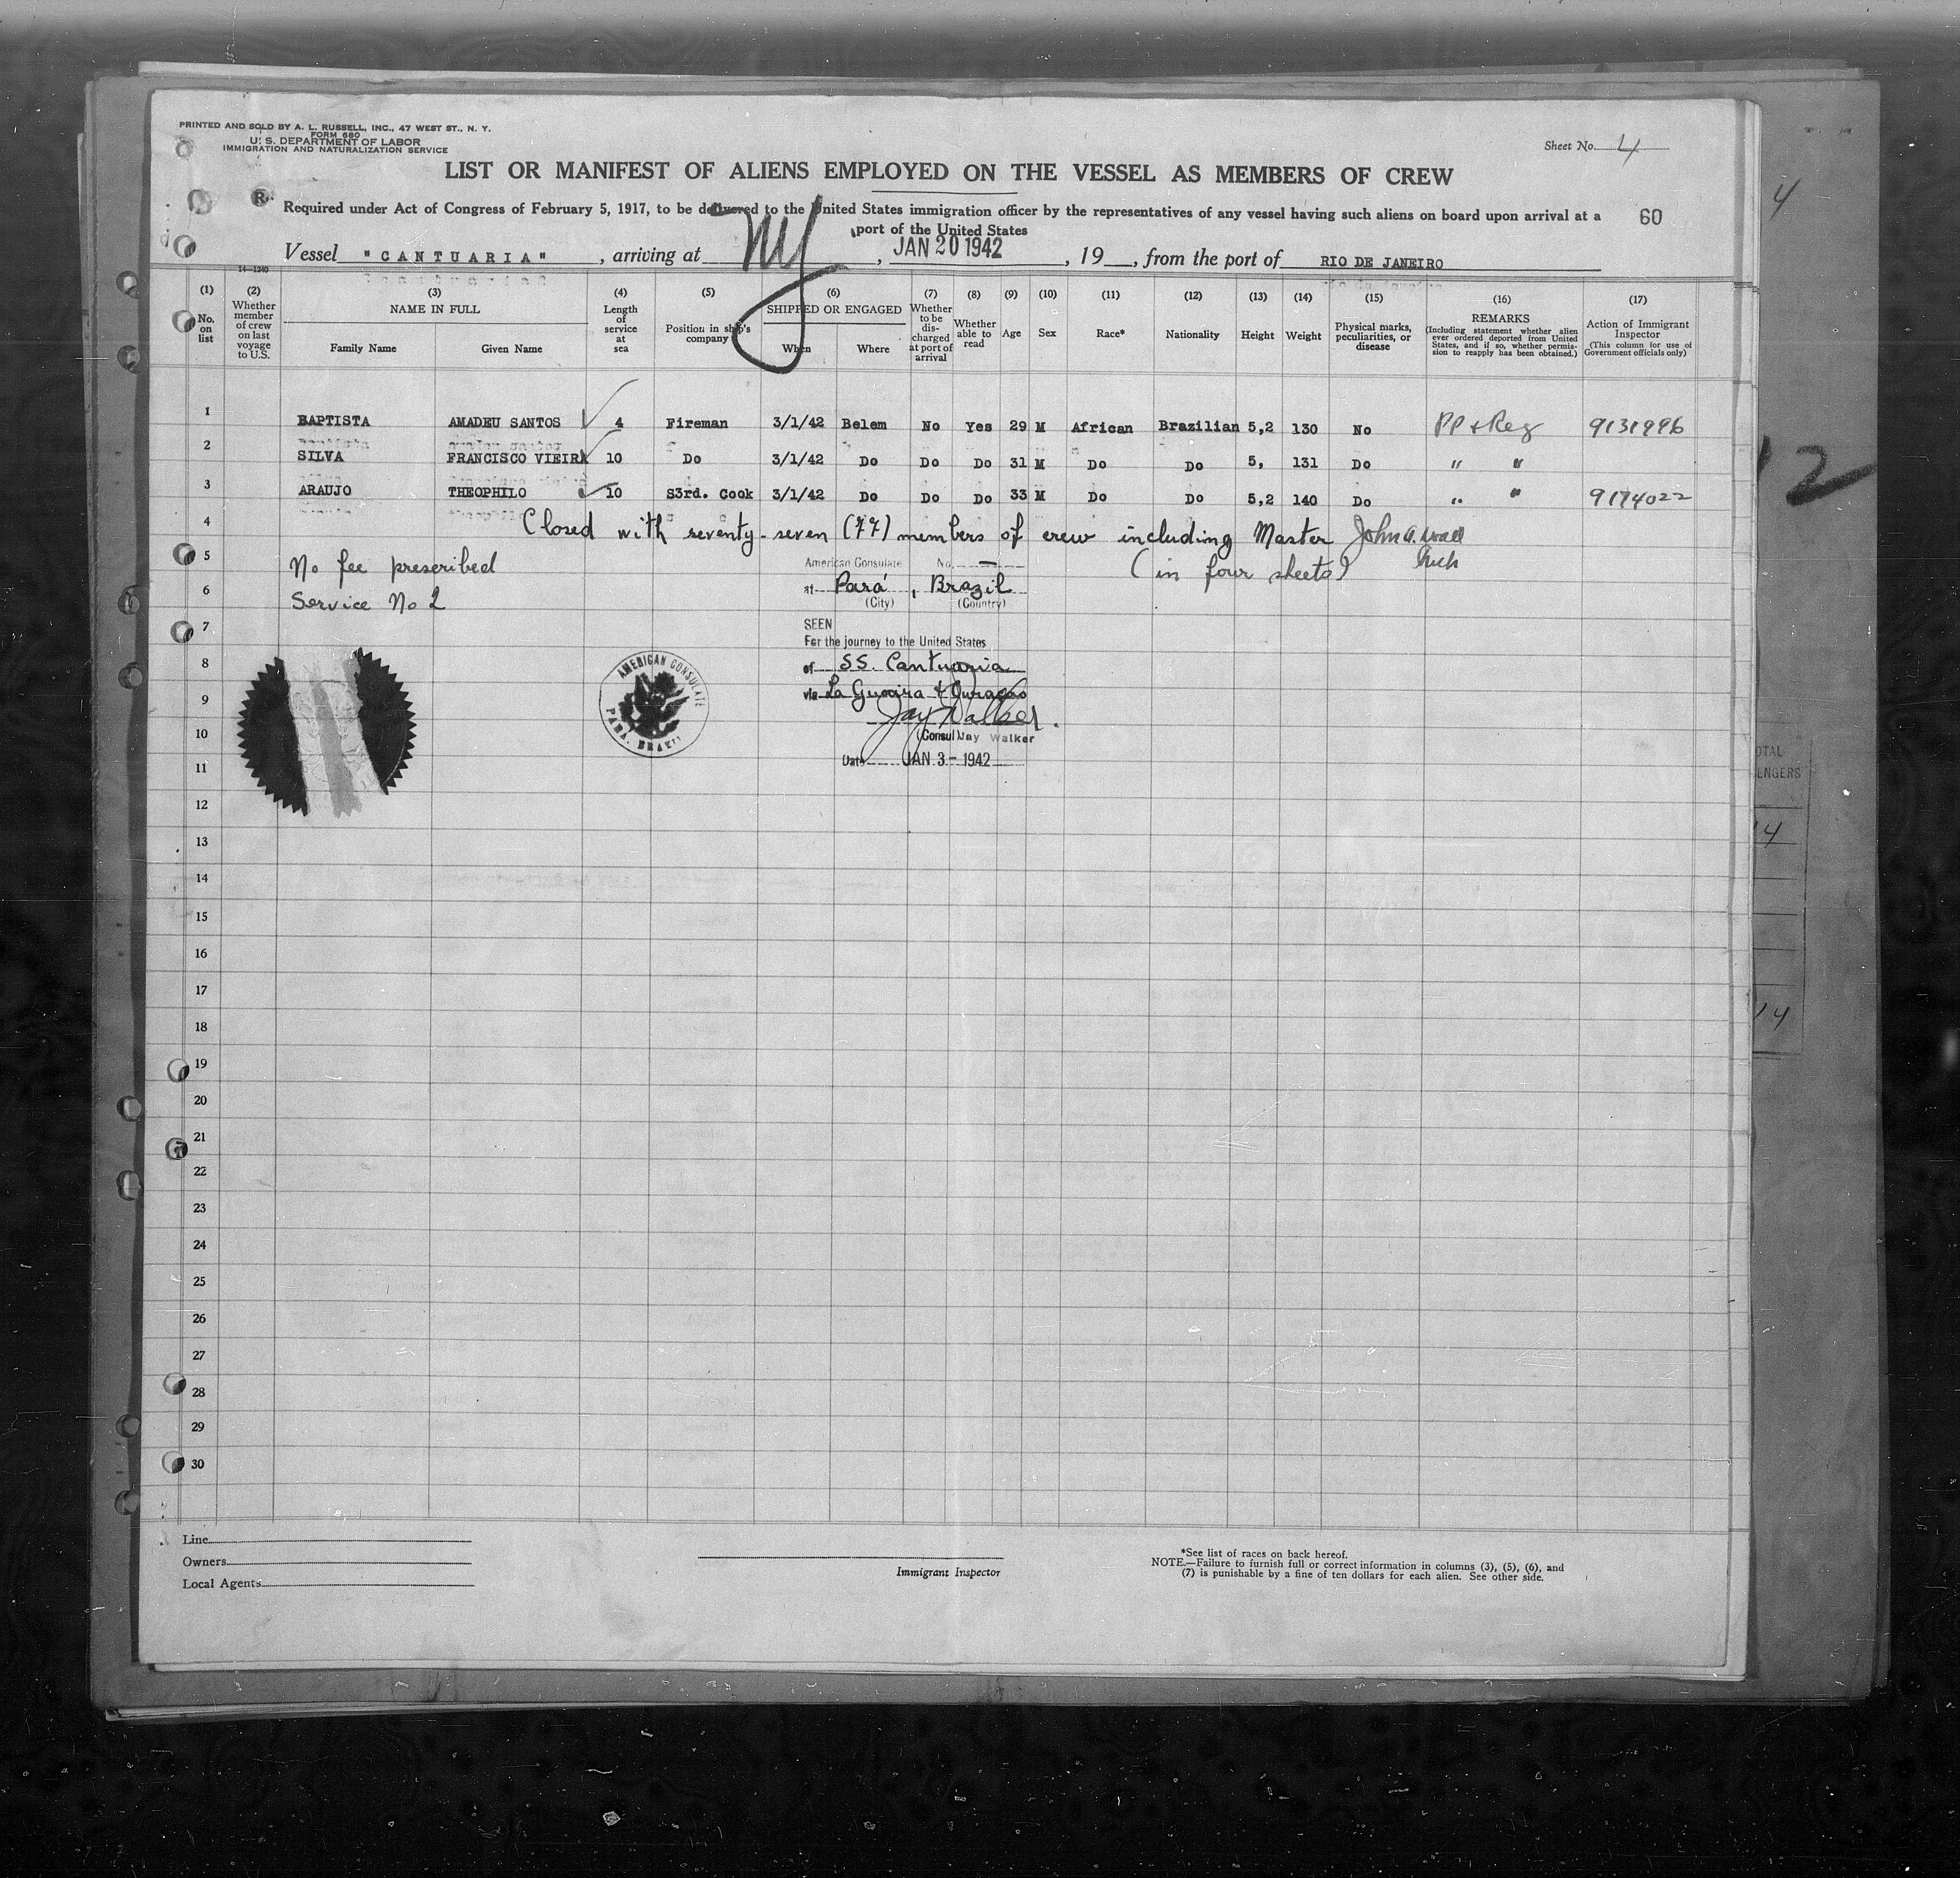 PRINTED AND SOLD BY A. L. RUSSELL, INC., 47 WEST ST., N. Y.
FORM 680
U. S. DEPARTMENT OF LABOR
IMMIGRATION AND NATURALIZATION SERVICE
Sheet No. 4
4
LIST OR MANIFEST OF ALIENS EMPLOYED ON THE VESSEL AS MEMBERS OF CREW
Required under Act of Congress of February 5, 1917, to be delivered to the United States immigration officer by the representatives of any vessel having such aliens on board upon arrival at a
60
port of the United States
Vessel "CANTUARIA", arriving at NY, JAN 20 1942, 19__, from the port of RIO DE JANEIRO
14-1240
(1) No. on list
(2) Whether member of crew on last voyage to U.S.
(3) NAME IN FULL
Family Name Given Name
(4) Length of service at sea
(5) Position in ship's company
(6) SHIPPED OR ENGAGED
When Where
(7) Whether to be discharged at port of arrival
(8) Whether able to read
(9) Age
(10) Sex
(11) Race*
(12) Nationality
(13) Height
(14) Weight
(15) Physical marks, peculiarities, or disease
(16) REMARKS
(Including statement whether alien ever ordered deported from United States, and if so, whether permission to reapply has been obtained.)
(17) Action of Immigrant Inspector
(This column for use of Government officials only)
1 BAPTISTA AMADEU SANTOS 4 Fireman 3/1/42 Belem No Yes 29 M African Brazilian 5,2 130 No PP + Reg 9131996
2 SILVA FRANCISCO VIEIRA 10 Do 3/1/42 Do Do Do 31 M Do Do 5, 131 Do " "
3 ARAUJO THEOPHILO 10 S3rd. Cook 3/1/42 Do Do Do 33 M Do Do 5,2 140 Do " " 9174022
4 Closed with seventy-seven (77) members of crew including Master John A.
5 No fee prescribed
American Consulate No. —
(in four sheets)
6 Service No 2
at Pará, Brazil
(City) (Country)
7 SEEN
For the journey to the United States
8 of SS. Cantuaria
9 via La Guaira & Curaçao
Jay Walker
10 (Consul) Jay Walker
11 Date JAN 3 - 1942
AMERICAN CONSULATE
PARÁ, BRAZIL
12
13
14
15
16
17
18
19
20
21
22
23
24
25
26
27
28
29
30
12
OTAL
ENGERS
14
14
Line
Owners
Local Agents
Immigrant Inspector
*See list of races on back hereof.
NOTE.—Failure to furnish full or correct information in columns (3), (5), (6), and
(7) is punishable by a fine of ten dollars for each alien. See other side.